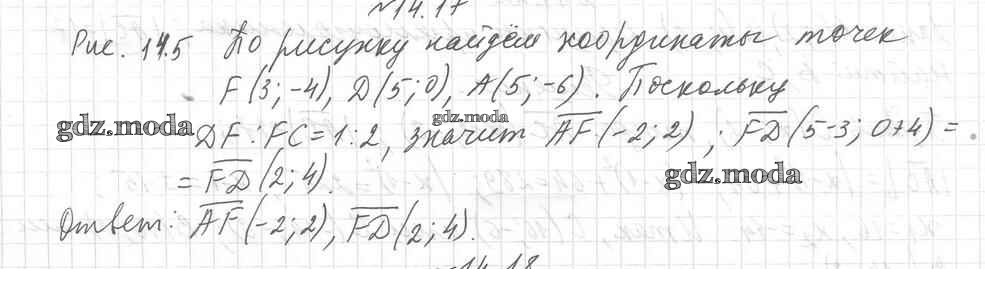 №14.17
Рис. 14.5 По рисунку найдём координаты точек
F(3;-4), D(5;0), A(5;-6). Поскольку
gdz.moda
gdz.moda
DF:FC=1:2, значит AF(-2;2); FD(5-3; 0+4)=
= FD(2;4).
gdz.moda
Ответ: AF(-2;2), FD(2;4).
14.18